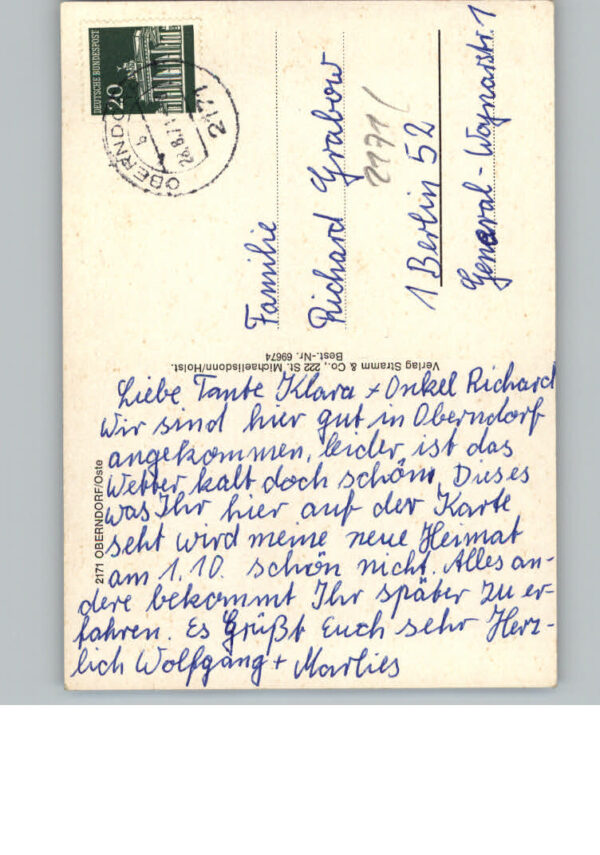 DEUTSCHE BUNDESPOST
20
2171
28.8.71
OBERNDO
Familie
Richard Grabow
2171
1 Berlin 52
General-Woynastr. 1
Verlag Stramm & Co., 222 St. Michaelisdonn/Holst.
Best.-Nr. 69674
2171 OBERNDORF/Oste
Liebe Tante Klara + Onkel Richard
Wir sind hier gut in Oberndorf
angekommen, leider ist das
Wetter kalt doch schön. Dieses
was Ihr hier auf der Karte
seht wird meine neue Heimat
am 1.10. schön nicht. Alles an-
dere bekommt Ihr später zu er-
fahren. Es Grüßt Euch sehr Herz-
lich Wolfgang + Marlies